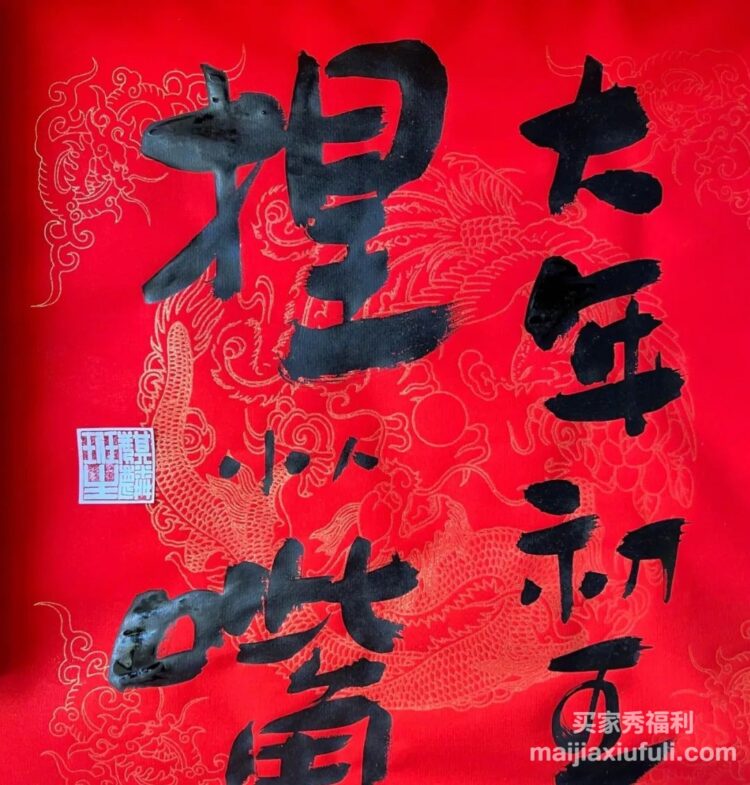 大年初五
捏小人嘴
买家秀福利
maijiaxiufuli.com